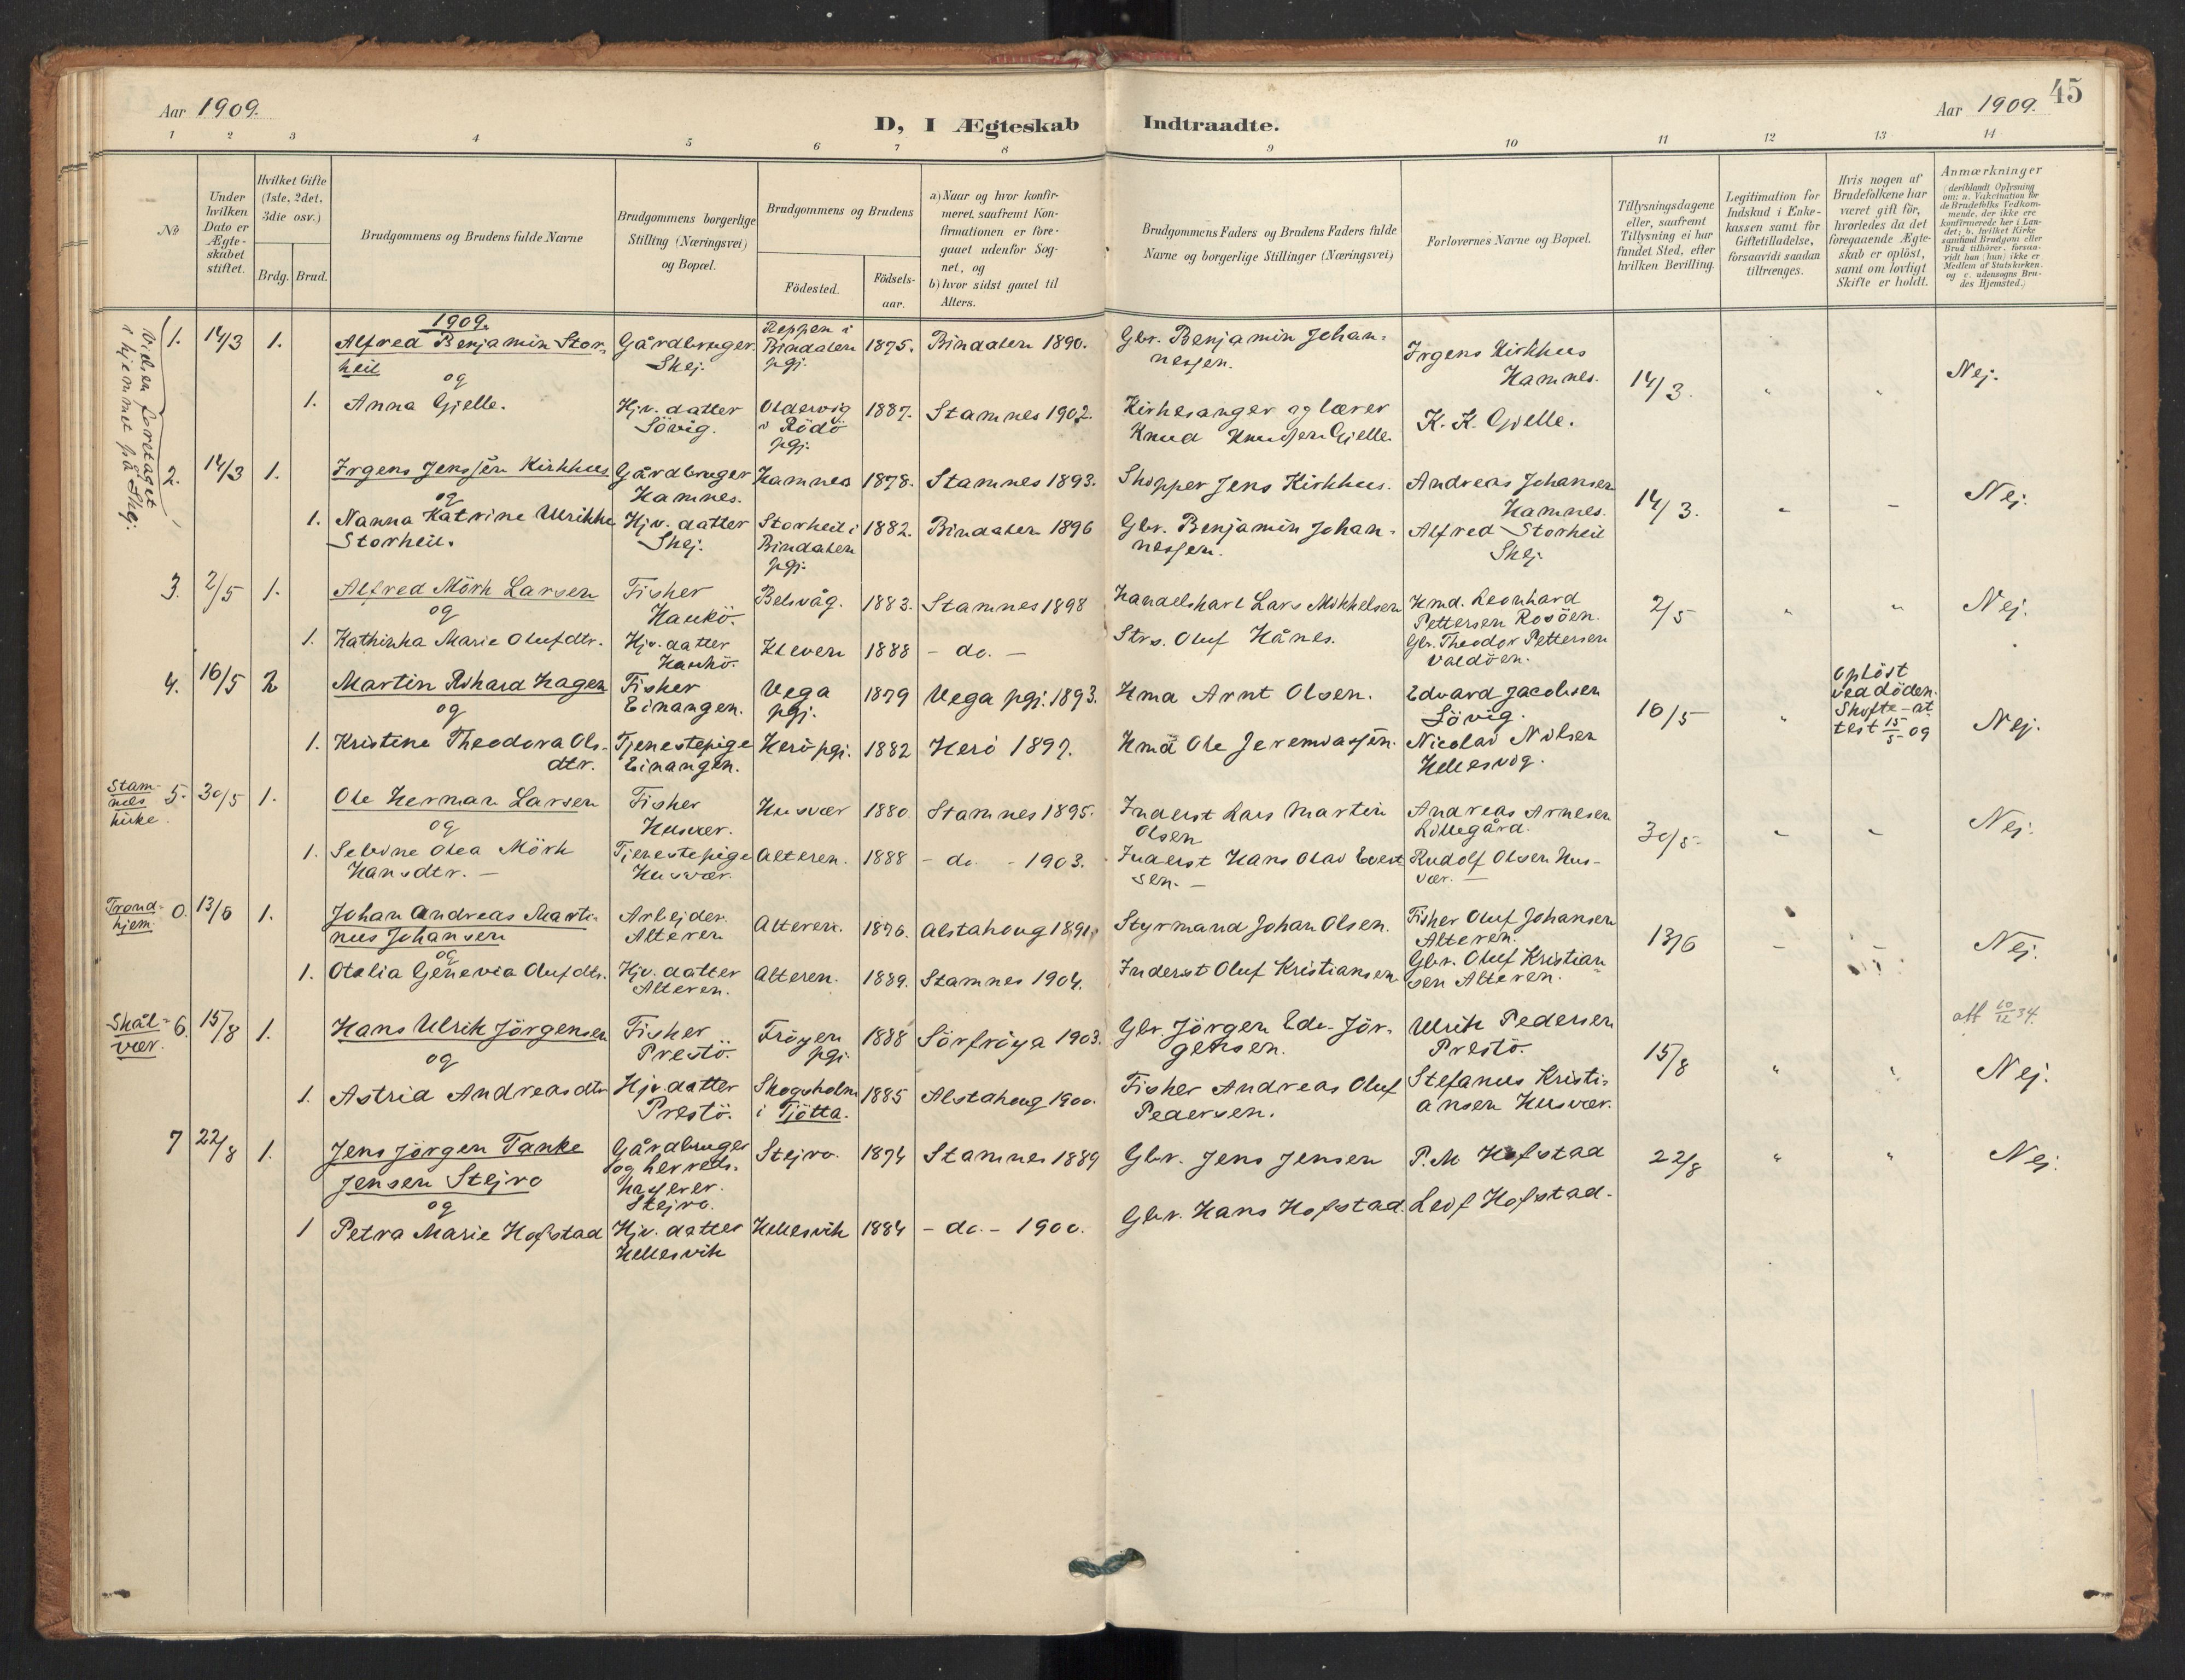 45
Aar 1909.
Aar 1909.
D, I Ægteskab Indtraadte.
1 2 3 4 5 6 7 8 9 10 11 12 13 14
No
Under
hvilken
Dato er
Ægte-
skabet
stiftet.
Hvilket Gifte
(1ste, 2det,
3die osv.)
Brdg. Brud.
Brudgommens og Brudens fulde Navne
Brudgommens borgerlige
Stilling (Næringsvei)
og Bopæl.
Brudgommens og Brudens
Födested.
Födsels-
aar.
a) Naar og hvor konfir-
meret, saafremt Kon-
firmationen er fore-
gaaet udenfor Sog-
net, og
b) hvor sidst gaaet til
Alters.
Brudgommens Faders og Brudens Faders fulde
Navne og borgerlige Stillinger (Næringsvei)
Forlovernes Navne og Bopæl.
Tillysningsdagene
eller, saafremt
Tillysning ei har
fundet Sted, efter
hvilken Bevilling.
Legitimation for
Indskud i Enke-
kassen samt for
Giftetilladelse,
forsaavidt saadan
tiltrænges.
Hvis nogen af
Brudefolkene har
været gift för,
hvorledes da det
foregaaende Ægte-
skab er oplöst,
samt om lovligt
Skifte er holdt.
Anmærkninger
(deriblandt Oplysning
om: a. Vakcination for
de Brudefolks Vedkom-
mende, der ikke ere
konfirmerede her i Lan-
det; b. hvilket Kirke
samfund Brudgom eller
Brud tilhörer, forsaa-
vidt han (hun) ikke er
Medlem af Statskirken.
og c. udensogns Bru-
des Hjemsted.)
Vielsen foretaget
i hjemmet på Skej.
1909.
1. 14/3 1. Alfred Benjamin Stor-
heil
og
Gårdbruger
Skej.
Reppen i
Bindalen
pgj.
1875. Bindalen 1890.
Gbr. Benjamin Johan-
nessen.
Irgens Kirkhus
Hamnes.
14/3. " " Nej.
1. Anna Gjelle.
Hjv. datter
Sövig.
Oldervig
i Rödö
pgj.
1887. Stamnes 1902.
Kirkesanger og lærer
Knud Knudsen Gjelle
K. K. Gjelle.
2. 14/3 1. Irgens Jenssen Kirkhus
og
Gårdbruger
Hamnes.
Hamnes 1878. Stamnes 1893.
Skipper Jens Kirkhus.
Andreas Johansen
Hamnes.
14/3. " - Nej.
1. Nanna Katrine Ulrikke
Storheil.
Hjv. datter
Skej.
Storheil i
Bindalen
pgj.
1882. Bindalen 1896
Gbr. Benjamin Johan-
nessen.
Alfred Storheil
Skej
3. 2/5 1. Alfred Mörk Larsen
og
Fisker
Haukö.
Belsvåg. 1883. Stamnes 1898
Handelskarl Lars Mikkelsen
Hmd. Leonhard
Pettersen Rosöen.
2/5 " " Nej.
1. Kathinka Marie Olufdtr.
Hjv. datter
Haukö.
Kleven 1888 - do. -
Strs. Oluf Hånes.
Gbr. Theodor Pettersen
Valdöen.
4. 16/5 2 Martin Rikard Hagen
og
Fisker
Einangen.
Vega
pgj.
1879 Vega pgj. 1893.
Hmd Arnt Olsen.
Edvard Jacobsen
Sövig.
16/5 "
Oplöst
ved döden.
Skifte-at-
test 15/5-09
Nej.
1. Kristine Theodora Ols-
dtr.
Tjenestepige
Einangen.
Herö pgj. 1882 Herö 1897.
Hmd Ole Jeremiassen.
Nicolai Nilsen
Hellesvig.
Stam-
nes
kirke.
5. 30/5 1. Ole Herman Larsen
og
Fisker
Husvær.
Husvær 1880. Stamnes 1895.
Inderst Lars Martin
Olsen
Andreas Arnesen
Lillegård.
30/5- - - Nej.
1. Selvine Olea Mörk
Hansdtr. -
Tjenestepige
Husvær.
Alteren. 1888 - do. - 1903.
Inderst Hans Olai Evert-
sen. -
Rudolf Olsen Hus-
vær. -
Trond-
hjem.
0. 13/6 1. Johan Andreas Marti-
nus Johansen
og
Arbejder.
Alteren
Alteren. 1876. Alstahoug 1891.
Styrmand Johan Olsen.
Fisker Oluf Johansen
Alteren.
13/6 - - Nej.
1. Otalia Genevia Olufdtr.
Hjv. datter
Alteren.
Alteren. 1889. Stamnes 1904.
Inderst Oluf Kristiansen
Gbr. Oluf Kristian-
sen Alteren.
Skål-
vær.
6. 15/8 1. Hans Ulrik Jörgensen
og
Fisker
Prestö.
Fröyen
pgj.
1888 Sörfröya 1903.
Gbr. Jörgen Edv. Jör-
gensen.
Ulrik Pedersen
Prestö.
15/8 " "
att 10/12 34.
Nej.
1. Astrid Andreasdtr
Hjv. datter
Prestö.
Skogsholm
i Tjötta.
1885 Alstahoug 1900.
Fisker Andreas Oluf
Pedersen.
Stefanus Kristi-
ansen Husvær.
7 22/8 1. Jens Jörgen Tanke
Jensen Stejro
og
Gårdbruger
og herreds-
kasserer.
Stejro.
Stejro. 1874 Stamnes 1889
Gbr. Jens Jensen
P. M Hofstad
22/8 " " Nej.
1 Petra Marie Hofstad
Hjv. datter
Hellesvik
Hellesvik 1884 - do. - 1900.
Gbr. Hans Hofstad.
Leif Hofstad.